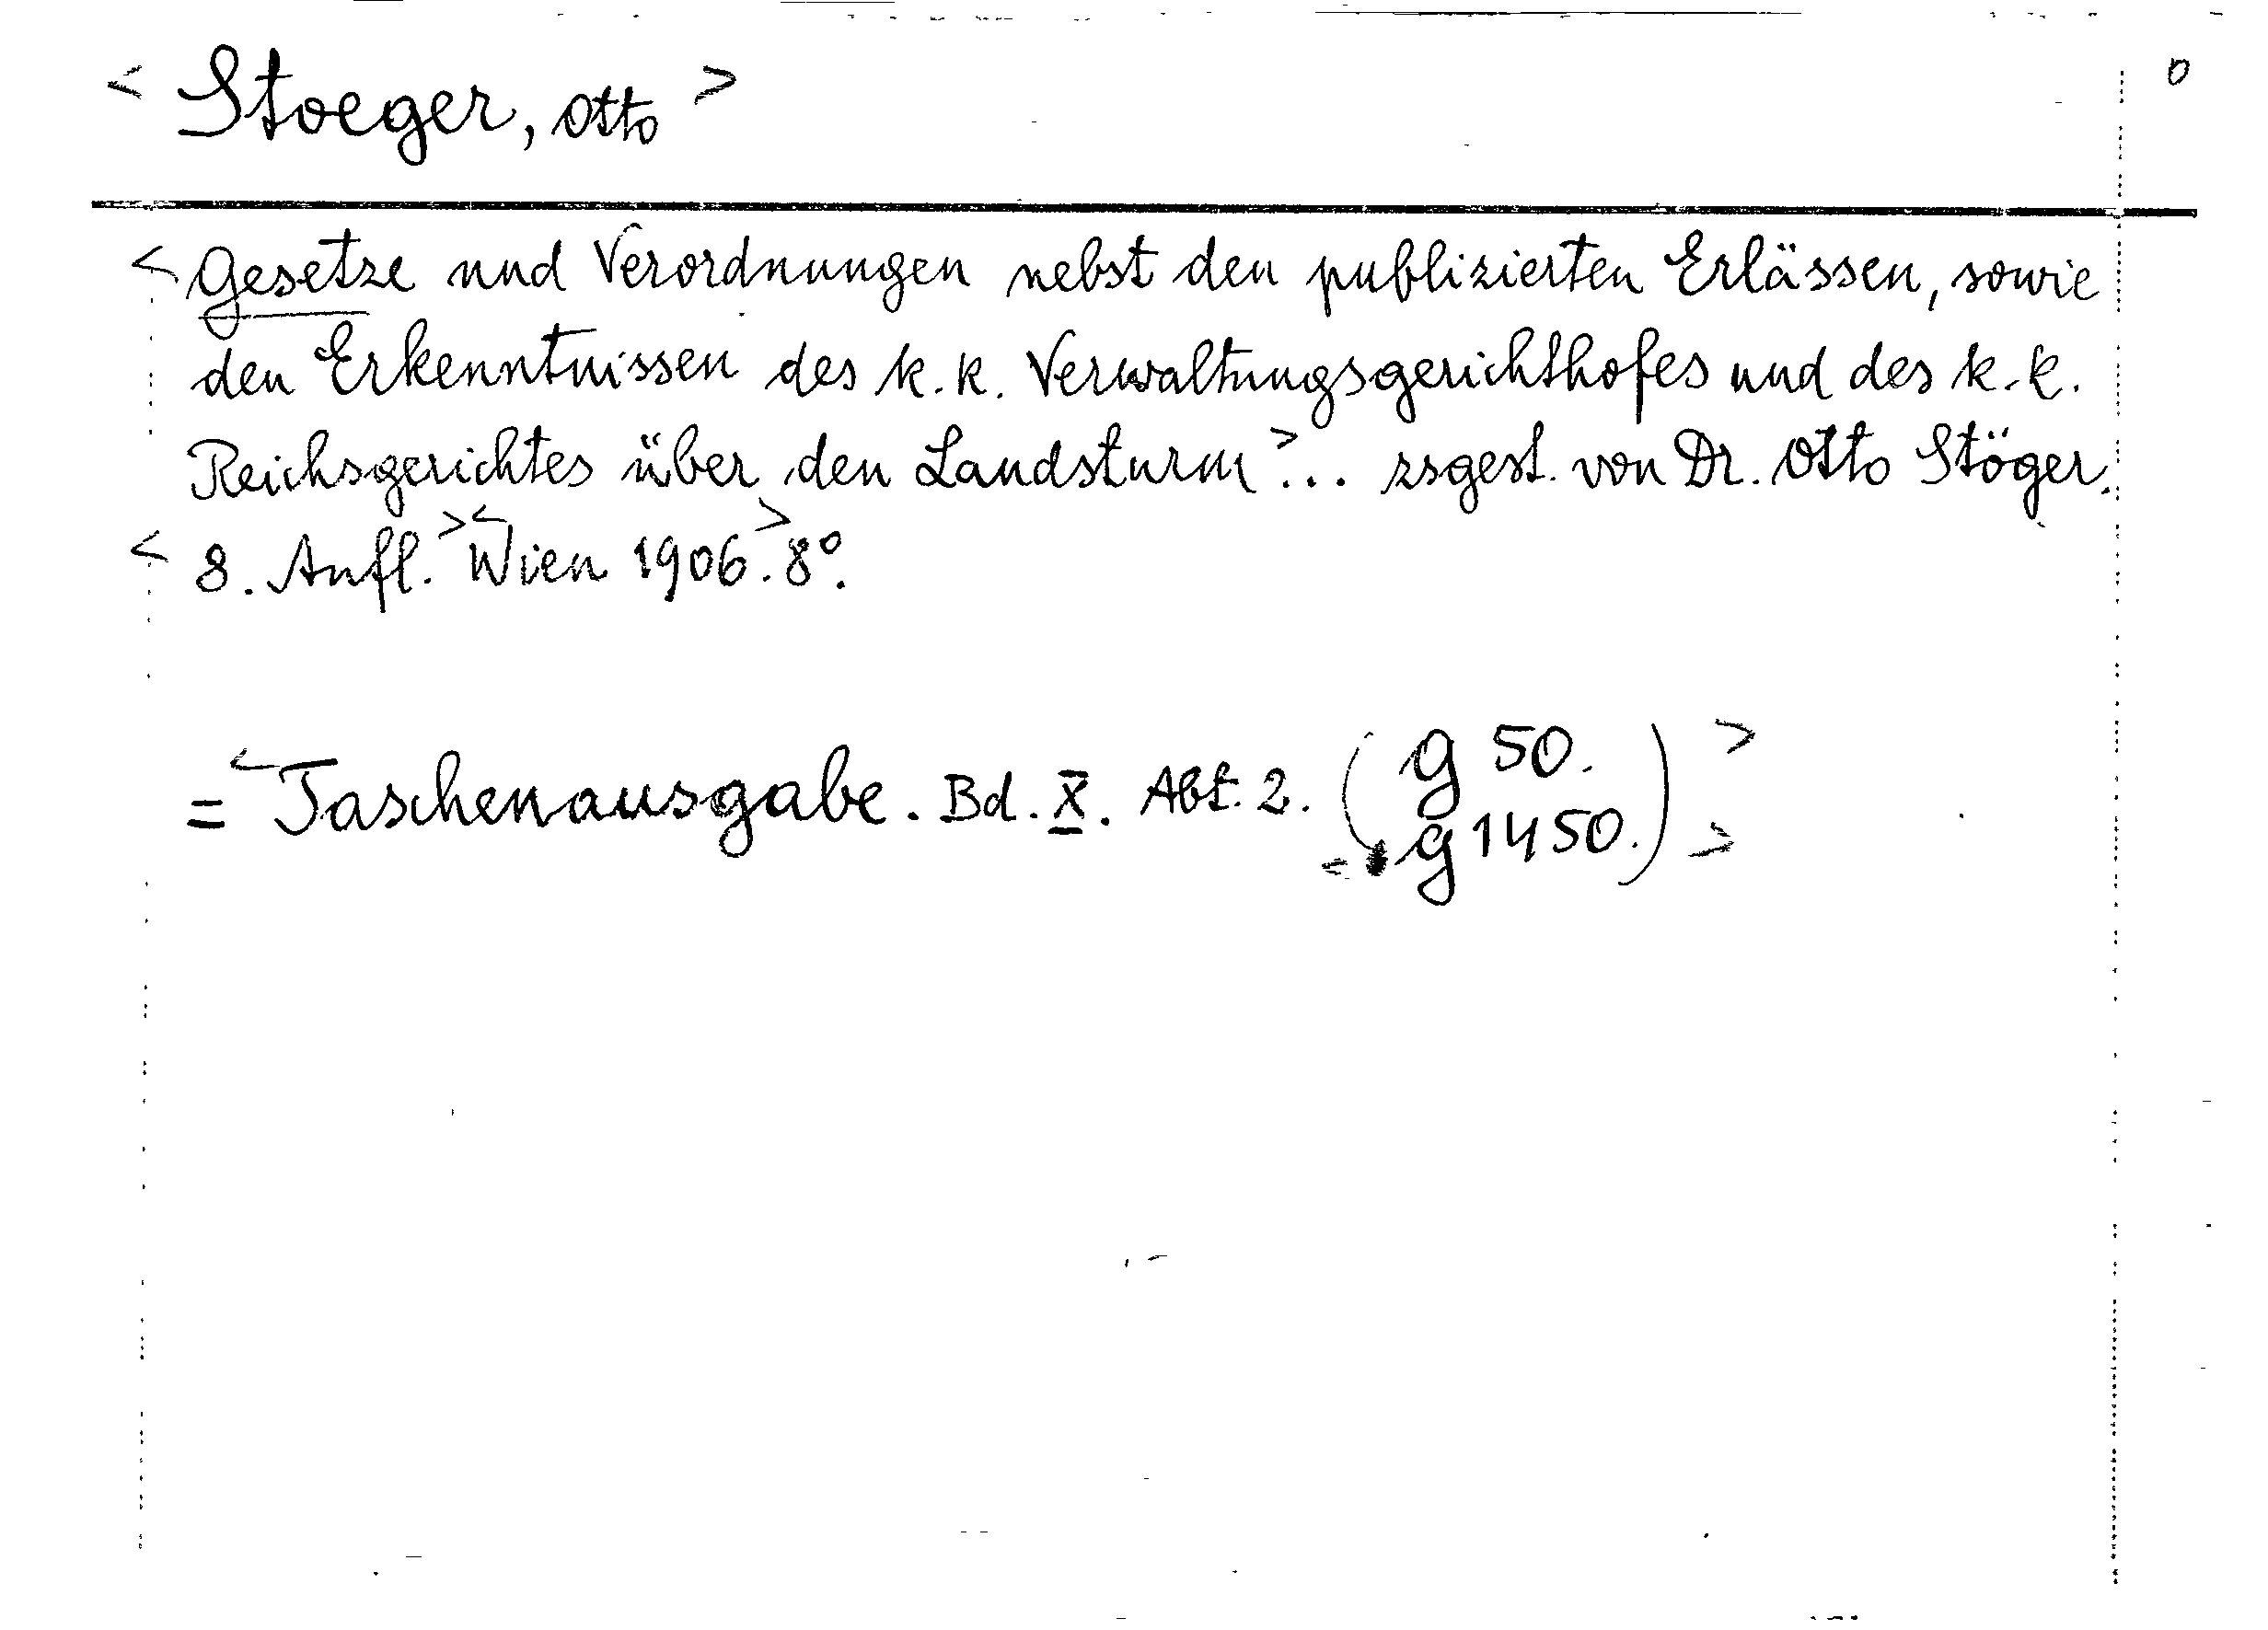 < Stoeger, Otto > 0
< Gesetze und Verordnungen nebst den publizierten Erlässen, sowie
den Erkenntnissen des k.k. Verwaltungsgerichthofes und des k.k.
Reichsgerichtes über den Landsturm >... zsgest. von Dr. Otto Stöger.
< 8. Aufl. > < Wien 1906 >. 8°.
= < Taschenausgabe. Bd. X. Abt. 2. ( g 50. >
< g 1450. ) >